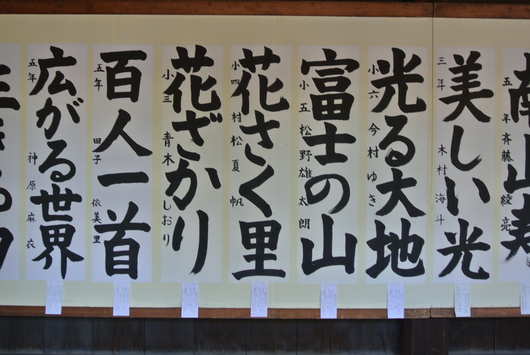 南山寿
五年 斉藤
美しい光
三年 木村海斗
光る大地
小六 今村ゆき
富士の山
小五 松野雄太朗
花さく里
小四 村松夏帆
花ざかり
小三 青木しおり
百人一首
五年 田子依美里
広がる世界
五年 神原麻衣
きる力